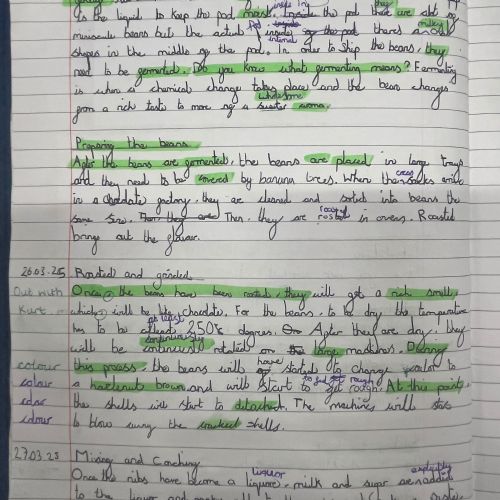 is the liquid to keep the pod moist. inside the pod there are alot of
minuscule beans but the actual inside internal of the pod theres an milky
shapes in the middle of the pod. In order to ship the beans, they
need to be germented. Do you know what germenting means? Fermenting
is when a chemical change takes place and the bean changes
from a rich taste to more of a wholesome aroma.
Preparing the beans
After the beans are germented, the beans are placed in large trays
and they need to be covered by banana trees. When the sacks arrive
in a chocolate factory, they are cleaned and sorted into beans the
same size. Then they are Then, they are roasted in ovens. Roasted
brings out the flavour.
26.03.25 Roasted and grinded
Out with Once the beans have been roasted, they will get a rich smell
Kurt. which will be like chocolate. For the beans, to be dry the temperature
has to be at least 250°c degrees. After they are dry, they
will be continuously rotated on large machines. During
colour this process, the beans will have started to change color to
colour a hazelnut brown and will start to get rough. At this point,
color the shells will start to detached. The machines will
colour to blow away the cracked shells.
27.03.25 Mixing and Conching
Once the nibs have become a liquor, milk and sugar are added explicitly
to the liquor and